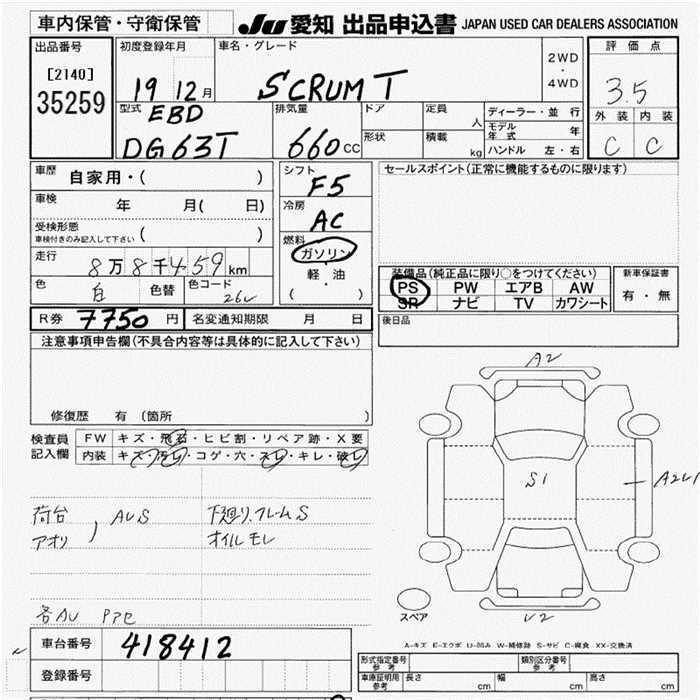 車内保管・守衛保管
JU 愛知 出品申込書 JAPAN USED CAR DEALERS ASSOCIATION
出品番号
[2140]
35259
初度登録年月
19 12月
車名・グレード
SCRUM T
2WD
・
4WD
評価点
3.5
外装 内装
C C
型式
EBD
DG63T
排気量
660 CC
ドア
形状
定員 人
積載 kg
ディーラー・並行
モデル年式 年
ハンドル 左・右
車歴 自家用・( )
車検 年 月( 日)
受検形態
車検付きのみ記入して下さい ( )
走行 8万8千459km
色 白 色替 色コード 26U
シフト
F5
冷房
AC
燃料
ガソリン
・
軽・油
( )
セールスポイント(正常に機能するものに限ります)
装備品(純正品に限り○をつけてください)
PS PW エアB AW
SR ナビ TV カワシート
新車保証書
有・無
R券 7750 円 名変通知期限 月 日
後日品
注意事項申告欄(不具合内容等は具体的に記入して下さい)
修復歴 有 (箇所 )
検査員記入欄
FW キズ・飛石・ヒビ割・リペア跡・X要
内装 キズ・汚レ・コゲ・穴・スレ・キレ・破レ
荷台
アオリ ) AUS
下廻り.フレームS
オイルモレ
各AU Pアセ
A2
S1
A2U1
U2
スペア
A-キズ E-エクボ U-凹み W-補修跡 S-サビ C-腐食 XX-交換済
車台番号 418412
登録番号
形式指定番号 参考
類別区分番号 参考
車庫証明用 参考 長さ cm 幅 cm 高さ cm